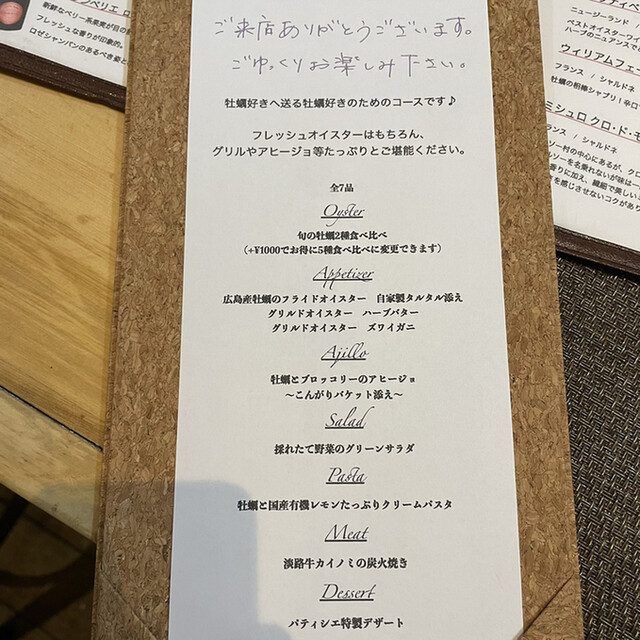 ご来店ありがとうございます。
ごゆっくりお楽しみ下さい。
牡蠣好きへ送る牡蠣好きのためのコースです♪
フレッシュオイスターはもちろん、
グリルやアヒージョ等たっぷりとご堪能ください。
全7品
Oyster
旬の牡蠣2種食べ比べ
（+¥1000でお得に5種食べ比べに変更できます）
Appetizer
広島産牡蠣のフライドオイスター　自家製タルタル添え
グリルドオイスター　ハーブバター
グリルドオイスター　ズワイガニ
Ajillo
牡蠣とブロッコリーのアヒージョ
〜こんがりバケット添え〜
Salad
採れたて野菜のグリーンサラダ
Pasta
牡蠣と国産有機レモンたっぷりクリームパスタ
Meat
淡路牛カイノミの炭火焼き
Dessert
パティシエ特製デザート
新鮮なベリー系果実が目の前
フレッシュな香りが印象的。
ロゼシャンパンのあるべき姿と
ニュージーランド
ベストオイスターワイ
ハーブのニュアンスで
ウィリアムフェ
フランス / シャルドネ
牡蠣の相棒シャブリ!辛口
ミシュロ クロ・ド・
ランス / シャルドネ
ソー村の中心にある、クロ
ルソーを名乗れないが味は
香りに加え、繊細で美しいミ
を感じさせないコクがあり